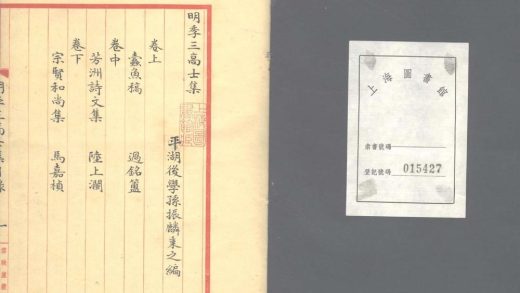 明季三高士集
平湖後學孫振麟秉之編
卷上
蠹魚稿 過銘簠
卷中
芳洲詩文集 陸上瀾
卷下
宗賢和尚集 馬嘉楨
明季三高士集目錄 一
上海圖書館
索書號碼
登記號碼 015427